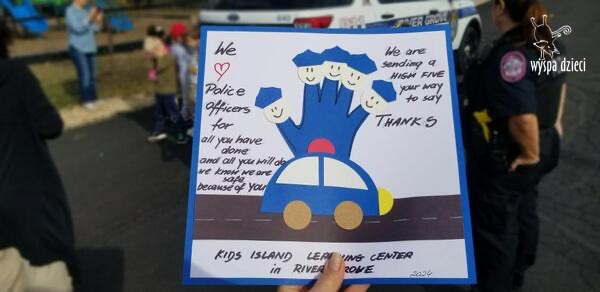 RIVER GROVE
wyspa dzieci
We
Police
Officers
for
all you have
done
and all you will do
we know we are
safe
because of you
We are
sending a
HIGH FIVE
your way
to say
THANKS
KIDS ISLAND LEARNING CENTER
in RIVER GROVE
2024